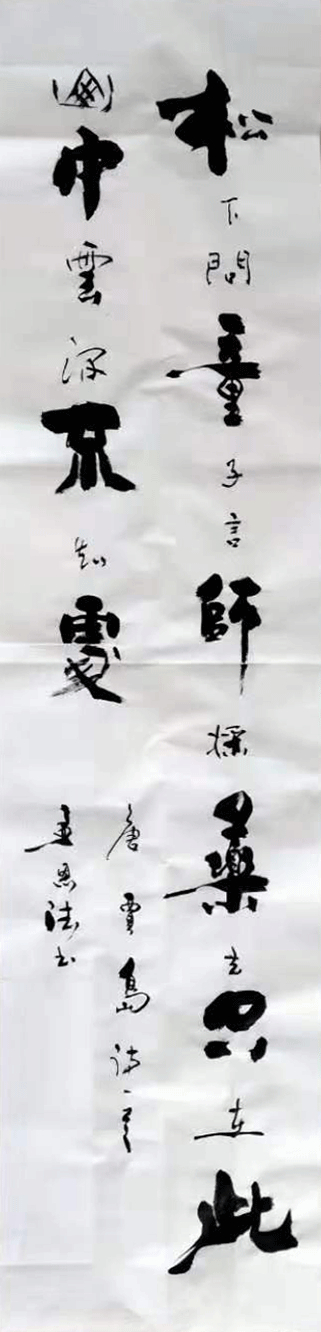 松下問童子言師採藥去只在此
中雲深不知處
唐賈島詩一首
恩法书